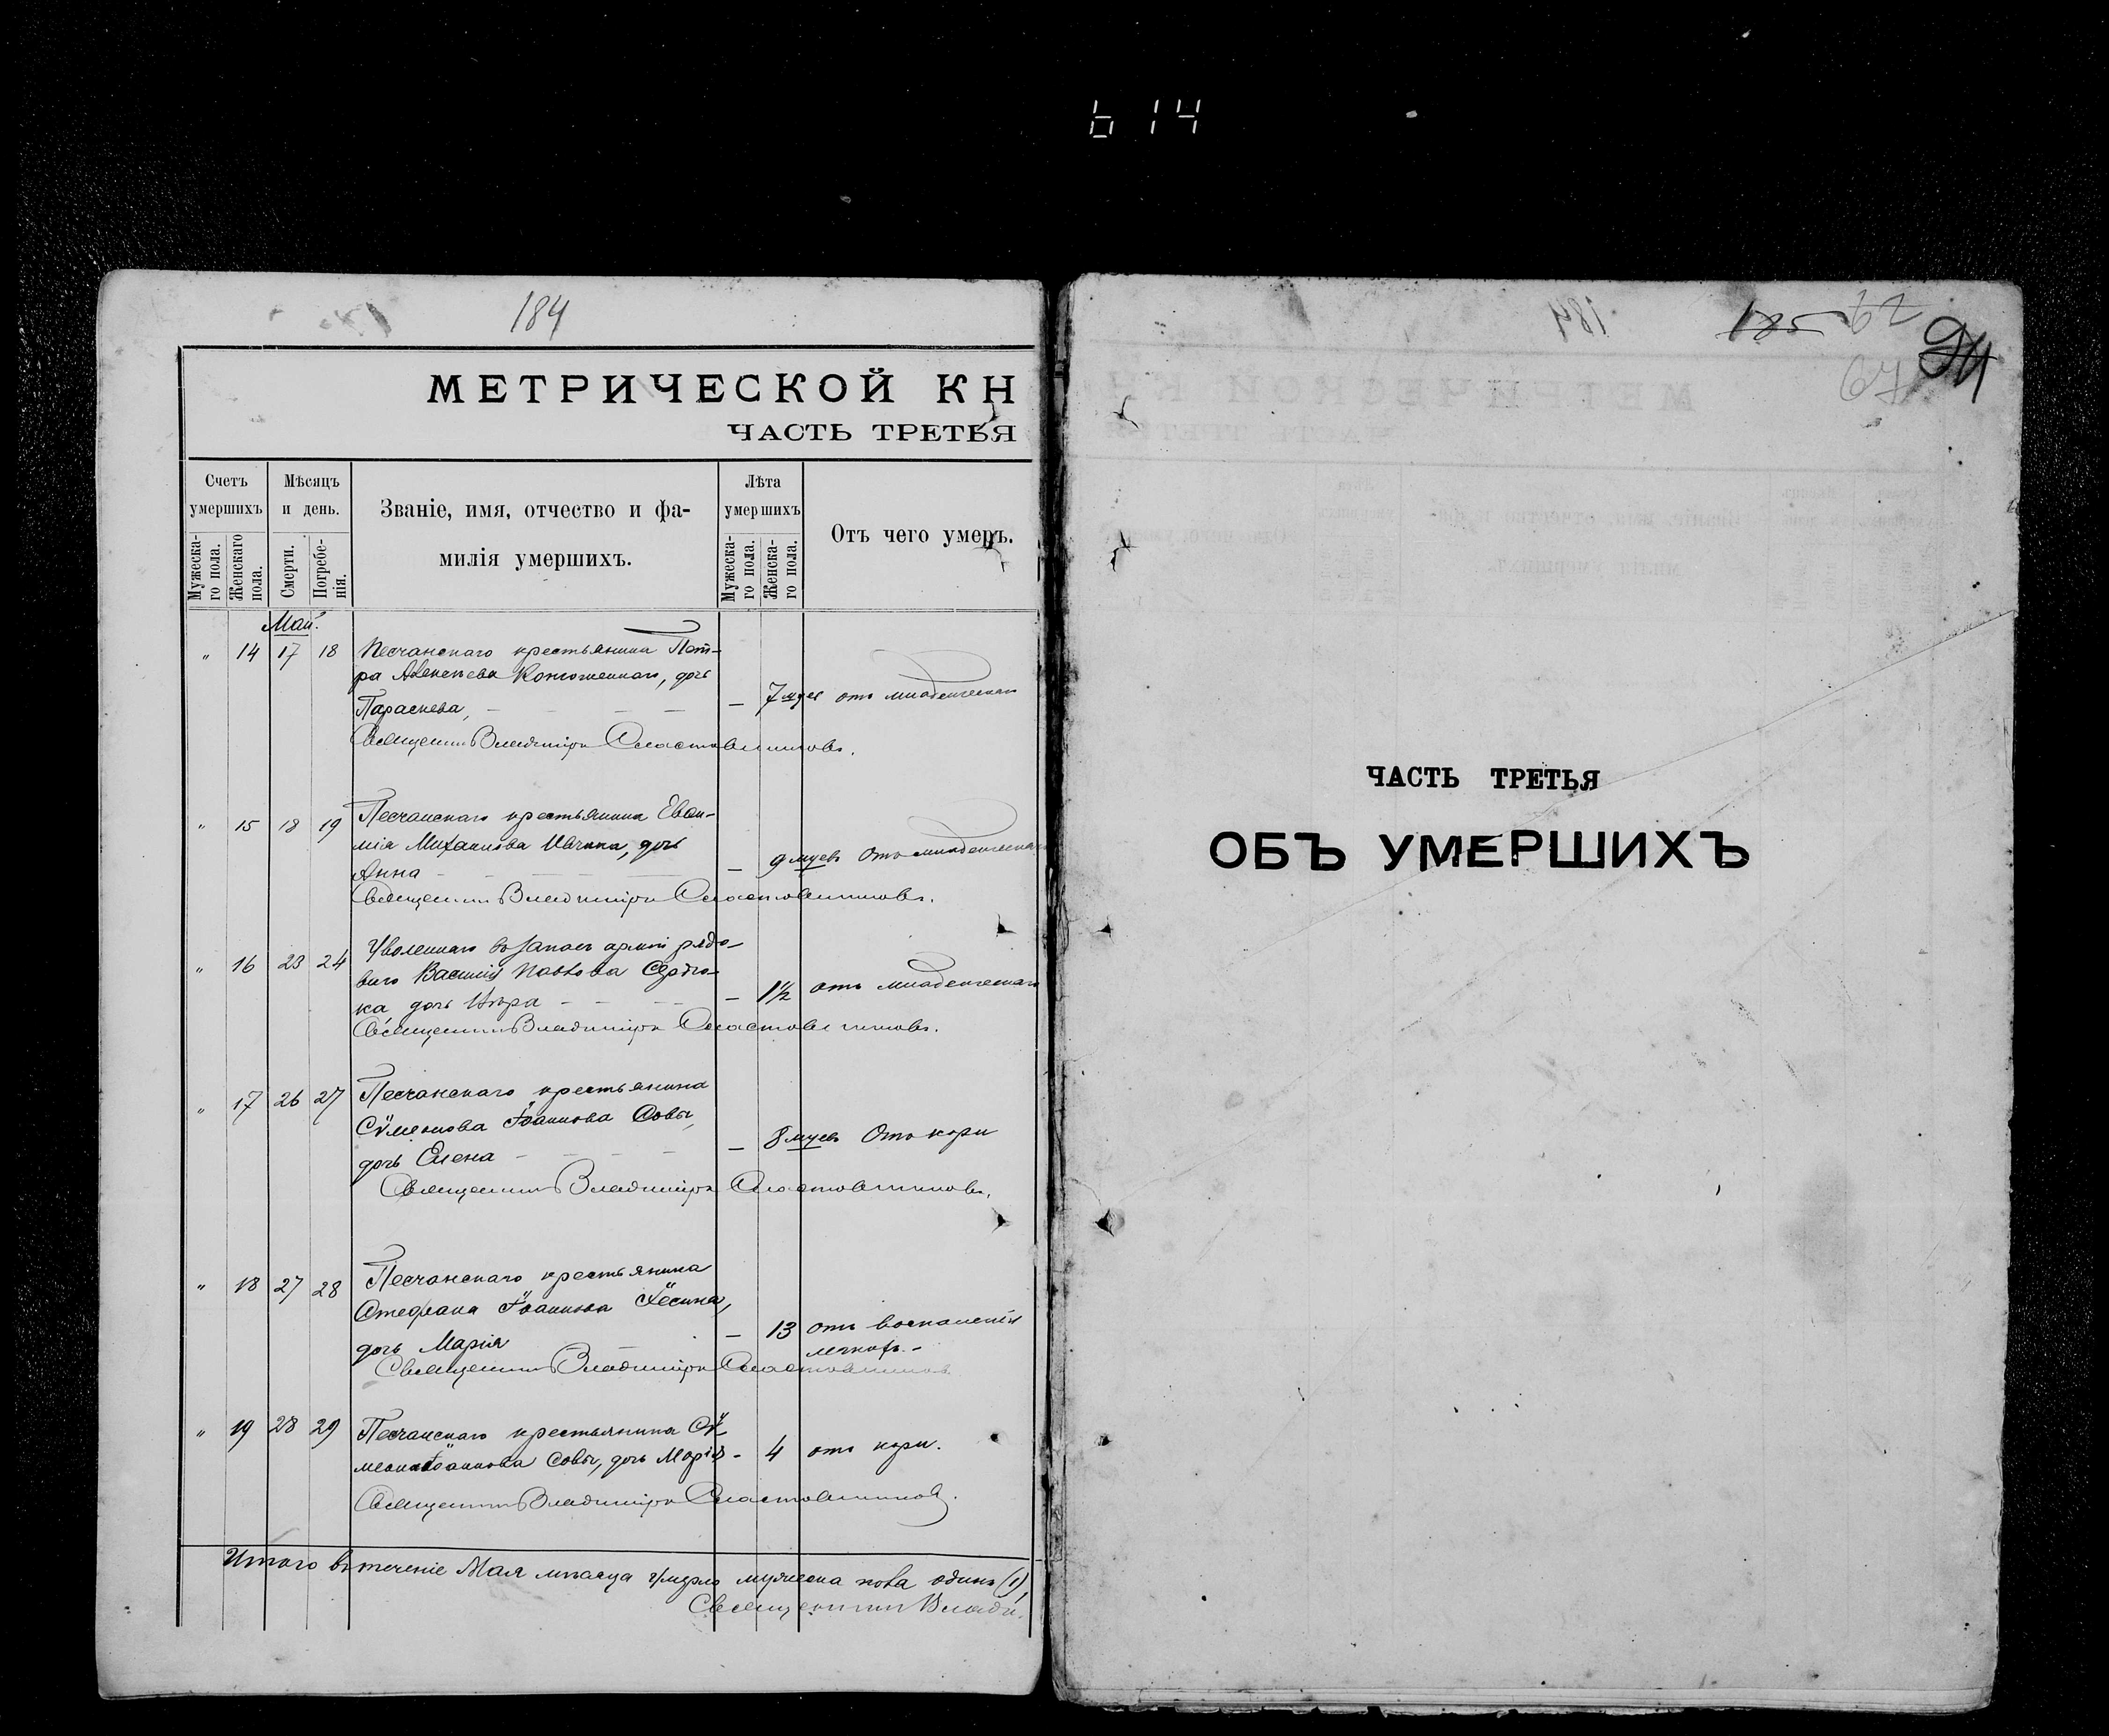 614
184
МЕТРИЧЕСКОЙ КН
ЧАСТЬ ТРЕТЬЯ
Счетъ умершихъ
Мужеска-го пола.
Женскаго пола.
Мѣсяцъ и день.
Смерти.
Погребе-нія.
Званіе, имя, отчество и фа-
милія умершихъ.
Лѣта умершихъ
Мужеска-го пола.
Женска-го пола.
Отъ чего умеръ.
Май.
" 14 17 18 Песчанскаго крестьянина Пет-
ра Алексѣева дочь
Параскева, — 7 мцев отъ младенческой
Священникъ Владиміръ Сластовниковъ.
" 15 18 19 Песчанскаго крестьянина
Михаилова дочь
Анна — 9 мцевъ Отъ младенческой
Священникъ Владиміръ Сластовниковъ.
" 16 23 24 Уволеннаго въ запасъ арміи рядо-
ваго Василія Павлова
ка, дочь — 1½ отъ младенческой
Священникъ Владиміръ Сластовниковъ.
" 17 26 27 Песчанскаго крестьянина
Сѵмеонова Іоаннова Совы,
дочь Елена — 8 мцевъ Отъ кори
Священникъ Владиміръ Сластовниковъ.
" 18 27 28 Песчанскаго крестьянина
Стефана Іоаннова
дочь Марія — 13 отъ воспаленія
легкихъ. -
Священникъ Владиміръ Сластовниковъ
" 19 28 29 Песчанскаго крестьянина Сѵ-
меона Іоаннова Совы, дочь Марія - 4 отъ кори.
Священникъ Владиміръ Сластовниковъ.
Итого въ теченіе Мая мѣсяца умерло мужеска пола одинъ (1),
Священникъ Влади
185 62
67
94
ЧАСТЬ ТРЕТЬЯ
ОБЪ УМЕРШИХЪ